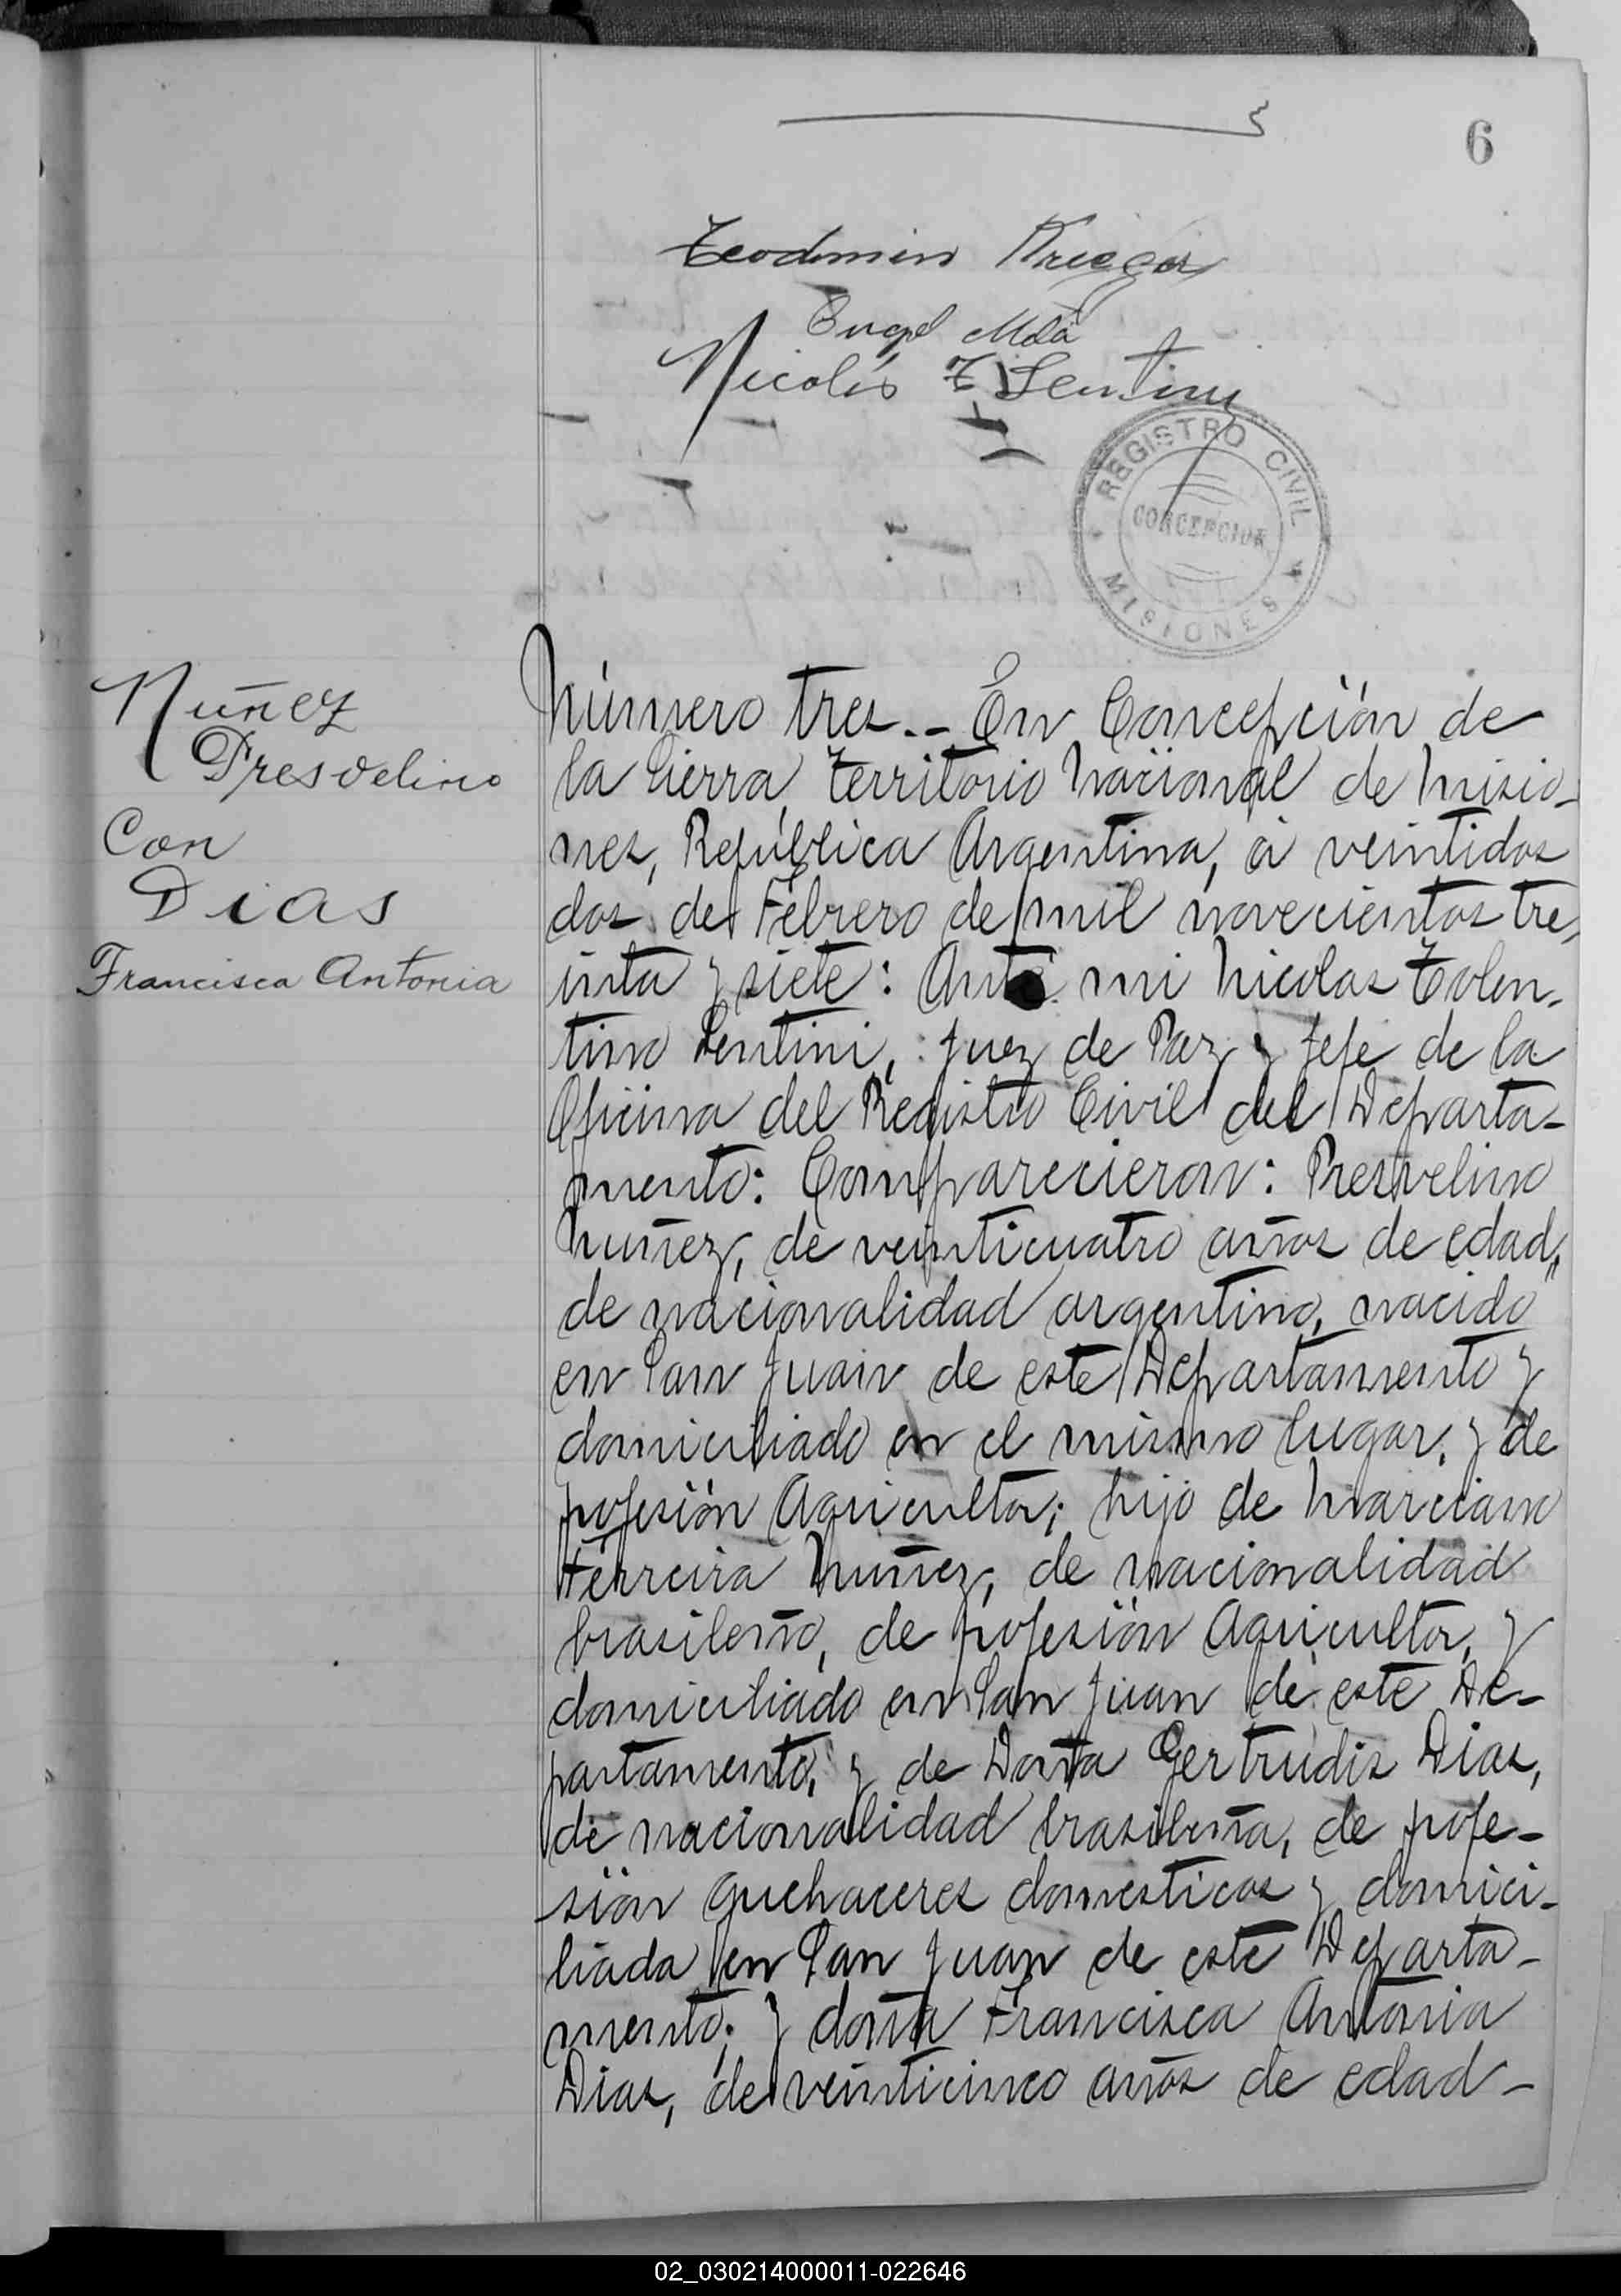 6
Teodomiro Krieger
Angel Mola
Nicolás T. Sentini
REGISTRO CIVIL
CONCEPCION
MISIONES
Nuñez
Presvelino
Con
Dias
Francisca Antonia
Número tres.- En Concepción de
la Sierra, Territorio Nacional de Misio-
nes, República Argentina, á veintidos
dos de Febrero de mil novecientos tre,
inta y siete: Ante mi Nicolas Tolen-
tino Sentini, Juez de Paz y Jefe de la
Oficina del Registro Civil del Departa-
mento: Comparecieron: Presvelino
Nuñez, de veinticuatro años de edad,
de nacionalidad argentino, nacido
en San Juan de este Departamento y
domiciliado en el mismo lugar, y de
profesión Agricultor; hijo de Marciano
Ferreira Nuñez, de nacionalidad
brasileño, de profesión Agricultor, y
domiciliado en San Juan de este De-
partamento, y de Doña Gertrudis Dias,
de nacionalidad brasileña, de profe-
sión quehaceres domesticos y domici-
liada en San Juan de este Departa-
mento; y doña Francisca Antonia
Dias, de veinticinco años de edad -
02_030214000011-022646